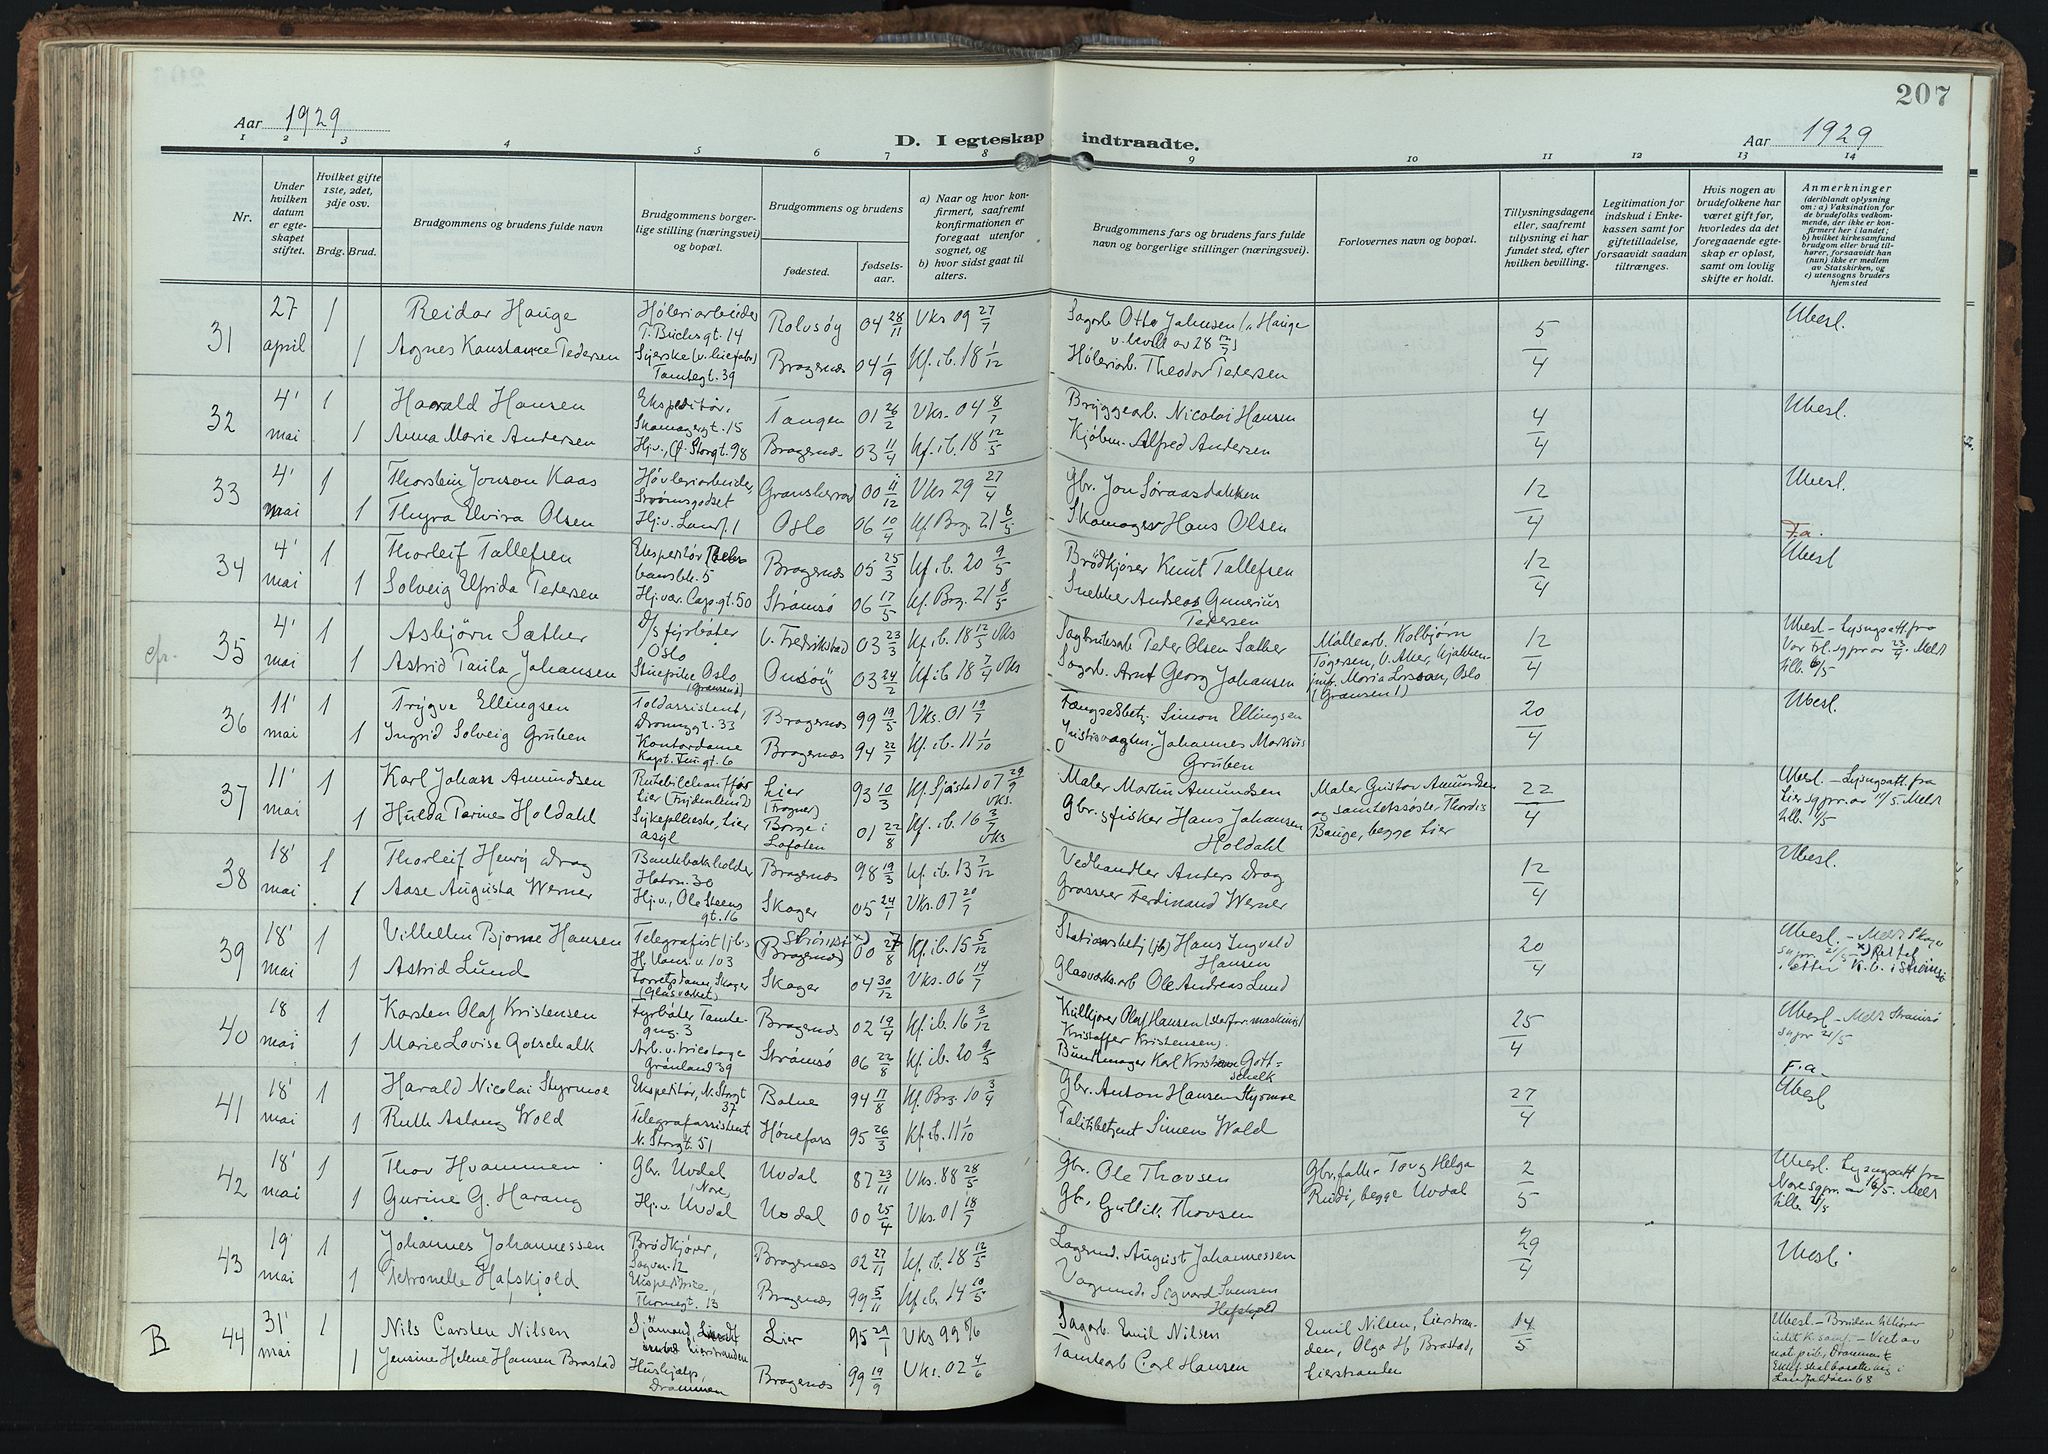 207
Aar 1929
D. I egteskap indtraadte.
Aar 1929
1 2 3 4 5 6 7 8 9 10 11 12 13 14
Nr.
Under hvilken datum er egte- skapet stiftet.
Hvilket gifte 1ste, 2det, 3dje osv.
Brdg. Brud.
Brudgommens og brudens fulde navn
Brudgommens borger- lige stilling (næringsvei) og bopæl.
Brudgommens og brudens
fødested.
fødsels- aar.
a) Naar og hvor kon- firmert, saafremt konfirmationen er foregaat utenfor sognet, og
b) hvor sidst gaat til alters.
Brudgommens fars og brudens fars fulde navn og borgerlige stillinger (næringsvei).
Forlovernes navn og bopæl.
Tillysningsdagene eller, saafremt tillysning ei har fundet sted, efter hvilken bevilling.
Legitimation for indskud i Enke- kassen samt for giftetilladelse, forsaavidt saadan tiltrænges.
Hvis nogen av brudefolkene har været gift før, hvorledes da det foregaaende egte- skap er opløst, samt om lovlig skifte er holdt.
Anmerkninger (deriblandt oplysning om: a) Vaksination for de brudefolks vedkom- mende, der ikke er kon- firmert her i landet; b) hvilket kirkesamfund brudgom eller brud til- hører, forsaavidt han (hun) ikke er medlem av Statskirken, og c) utensogns bruders hjemsted
31 27 april 1 Reidar Hauge T. Buchsgt. 14 Rolvsøy 04 28/11 Vks 09 27/7 Sagarb. Otto Johnsen 5/4 Ubesl.
1 Agnes Konstance Pedersen Tamtegt. 39 Bragernæs 04 1/9 Kf. ib. 18 1/12 Høleriarb. Theodor Pedersen
32 4' mai 1 Harald Hansen Ekspeditør, Skomagergt. 15 Tangen 01 26/2 Vks. 04 8/7 Bryggearb. Nicolai Hansen 4/4 Ubesl.
1 Anna Marie Andersen Hj.v., Ø. Storgt. 98 Bragernæs 03 11/4 Kf. ib. 18 12/5 Kjøbm. Alfred Andersen
33 4' mai 1 Thorstein Jonson Kaas Høvleriarbeider, Strømsgodset Gransherrad 00 11/12 Vks 29 27/4 Gbr. Jon Søraasdekken 12/4 Ubesl.
1 Thyra Elvira Olsen Oslo 06 10/4 Kf. Brg. 21 8/5 Skomager Hans Olsen
34 4' mai 1 Thorleif Tallefsen Ekspeditør Bragernæs 05 25/3 Kf. ib. 20 9/5 Brødkjører Knut Tallefsen 12/4 F.a. Ubesl
1 Solveig Elfrida Pedersen Hj.vær. Cap.gt. 50 Strømsø 06 17/5 Kf. Brg. 21 8/5 Snekker Andreas Gunerius Pedersen
cfr. 35 4' mai 1 Asbjørn Sæther D/s fyrbøter Oslo v. Fredrikstad 03 23/3 Kf. ib. 18 12/5 vks Sagbruksarb. Peter Olsen Sæther Mallearb. Kolbjørn Tøgersen, V. Aker, 12/4 Ubesl - Lysngsatt. fra
1 Astrid Paula Johansen Stuepike Oslo (Grænsen 1) Onsøy 03 24/2 Kf. ib 18 7/4 vks Sagarb. Arnt Georg Johansen Maria Larssen, Oslo (Grænsen 1)
36 11' mai 1 Trygve Ellingsen Toldassistent, Dronnggt. 33 Bragernæs 99 19/5 Vks. 01 19/7 Fængselsbetj. Simon Ellingsen 20/4 Ubesl.
1 Ingrid Solveig Gruben Kontordame Bragernæs 94 22/7 Kf. ib. 11 1/10 Johannes Markus Gruben
37 11' mai 1 Karl Johan Amundsen Lier (Frogner) 93 10/3 Kf. Sjåstad 07 29/9 vks. Maler Martin Amundsen Maler Gustav Amundsen 22/4 Ubesl. - Lysngsatt. fra Lier sgpr. av 11/5. Meldt
1 Hulda Perine Holdahl Sykepleierske, Lier asyl Borge i Lofoten 01 22/8 Kf. ib. 16 3/7 vks Gbr. fisker Hans Johansen Holdahl og samtekssøster Thordis Bauge, begge Lier
38 18' mai 1 Thorleif Henry Drag Bankbokholder Bragernæs 98 19/3 Kf. ib. 13 7/12 Vedhandler Anders Drag 12/4 Ubesl.
1 Aase Augusta Werner Hj.v., Ole Steens gt. 16 Skoger 05 24/1 Vks. 07 20/7 Grosserer Ferdinand Werner
39 18' mai 1 Vilhelm Bjarne Hansen Telegrafist (jb.) Strømsø x) (Bragernæs) 00 27/8 Kf. ib. 15 5/12 Stationsbetj. (jb) Hans Ingvald Hansen 20/4 Ubesl. - Meldt Skoger sgpr. 21/5 x) Rettet etter K.b. i Strømsø
1 Astrid Lund Skoger (Glasverket) Skoger 04 30/12 Vks. 06 14/7 Glasværksarb Ole Andreas Lund
40 18 mai 1 Karsten Olaf Kristensen Fyrbøter Bragernæs 02 19/4 Kf. ib. 16 3/12 Kulkjører Olaf Hansen Kristoffer Kristensen). 25/4 Ubesl - Meldt Strømsø sgpr 21/5
1 Marie Lovise Gotschalk Arb. v. tricotage Grønland 39 Strømsø 06 22/8 Kf. ib. 20 9/5 Buntmager Karl Kristian Gott- schalk
41 18' mai 1 Harald Nicolai Styrmoe Ekspeditør, N. Storgt 37 Botne 94 17/8 Kf. Brg. 10 3/4 Gbr. Anton Hansen Styrmoe 27/4 F.a. Ubesl
1 Ruth Aslaug Wold Telegrafassistent N. Storgt. 51 Hønefoss 95 26/3 Kf. ib. 11 1/10 Politibetjent Simen Wold
42 18' mai 1 Thov Hvammen Gbr. Uvdal Uvdal 87 23/11 Vks. 88 28/5 Gbr. Ole Thovsen Helga Ruudi, begge Uvdal 2/5 Ubesl. Lysngsatt fra Nore sgpr.
1 Gurine G. Harang Hj.v. Uvdal Uvdal 00 25/4 Vks. 01 18/7 Gbr. Gullik Thovsen
43 19' mai 1 Johannes Johannessen Brødkjører, Bragernæs 02 27/11 Kf. ib. 18 12/5 August Johannessen 29/4 Ubesl.
1 Petronelle Hafskjold Ekspeditrice, Thornegt. 13 Bragernæs 99 5/11 Kf. ib. 14 10/5 Sigvard Svensen Hafskjold
B 44 31' mai 1 Nils Carsten Nilsen Sjømand, Lierstranden Lier 95 29/1 Vks 99 8/6 Sagarb. Emil Nilsen Emil Nilsen, Lierstran- den, Olga H. Brastad, Lierstranden 14/5 Ubesl. - Bruden tilhører intet k.samf.
1 Jensine Helene Hansen Brastad Hushjelp, Drammen Bragernæs 99 19/9 Vks. 02 4/6 Tomtearb Carl Hansen